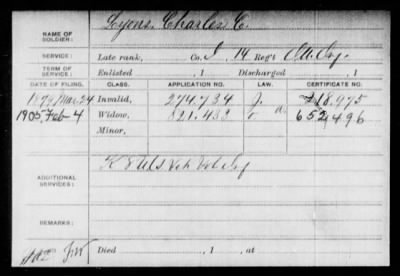 NAME OF SOLDIER: Lyons, Charles C.
SERVICE: Late rank, Co. I 14 Reg't Inf
TERM OF SERVICE: Enlisted , 1 Discharged , 1
DATE OF FILING. CLASS. APPLICATION NO. LAW. CERTIFICATE NO.
1879 Mar. 24 Invalid, 274.734 J. 218.975
1905 Feb 4 Widow, 821.432 a. 652,496
Minor,
ADDITIONAL SERVICES: K 8 US Vet Vol Inf
REMARKS:
Died , 1 , at